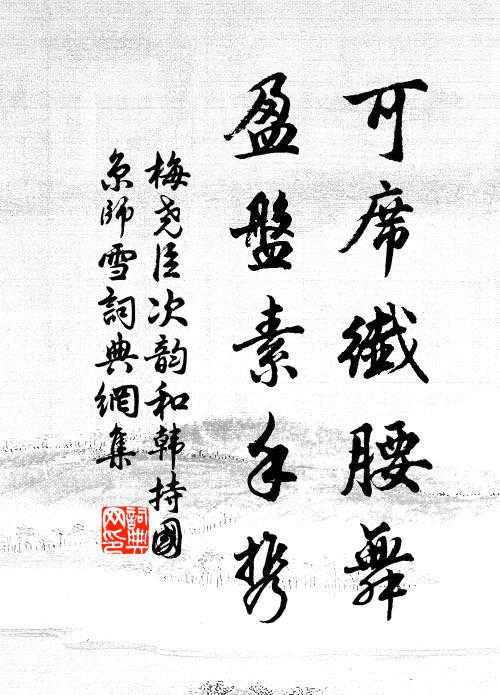 可席纖腰舞
盈盤素手携
梅尧臣次韵和韩持國
京師雪詞典網集
詞典
网印